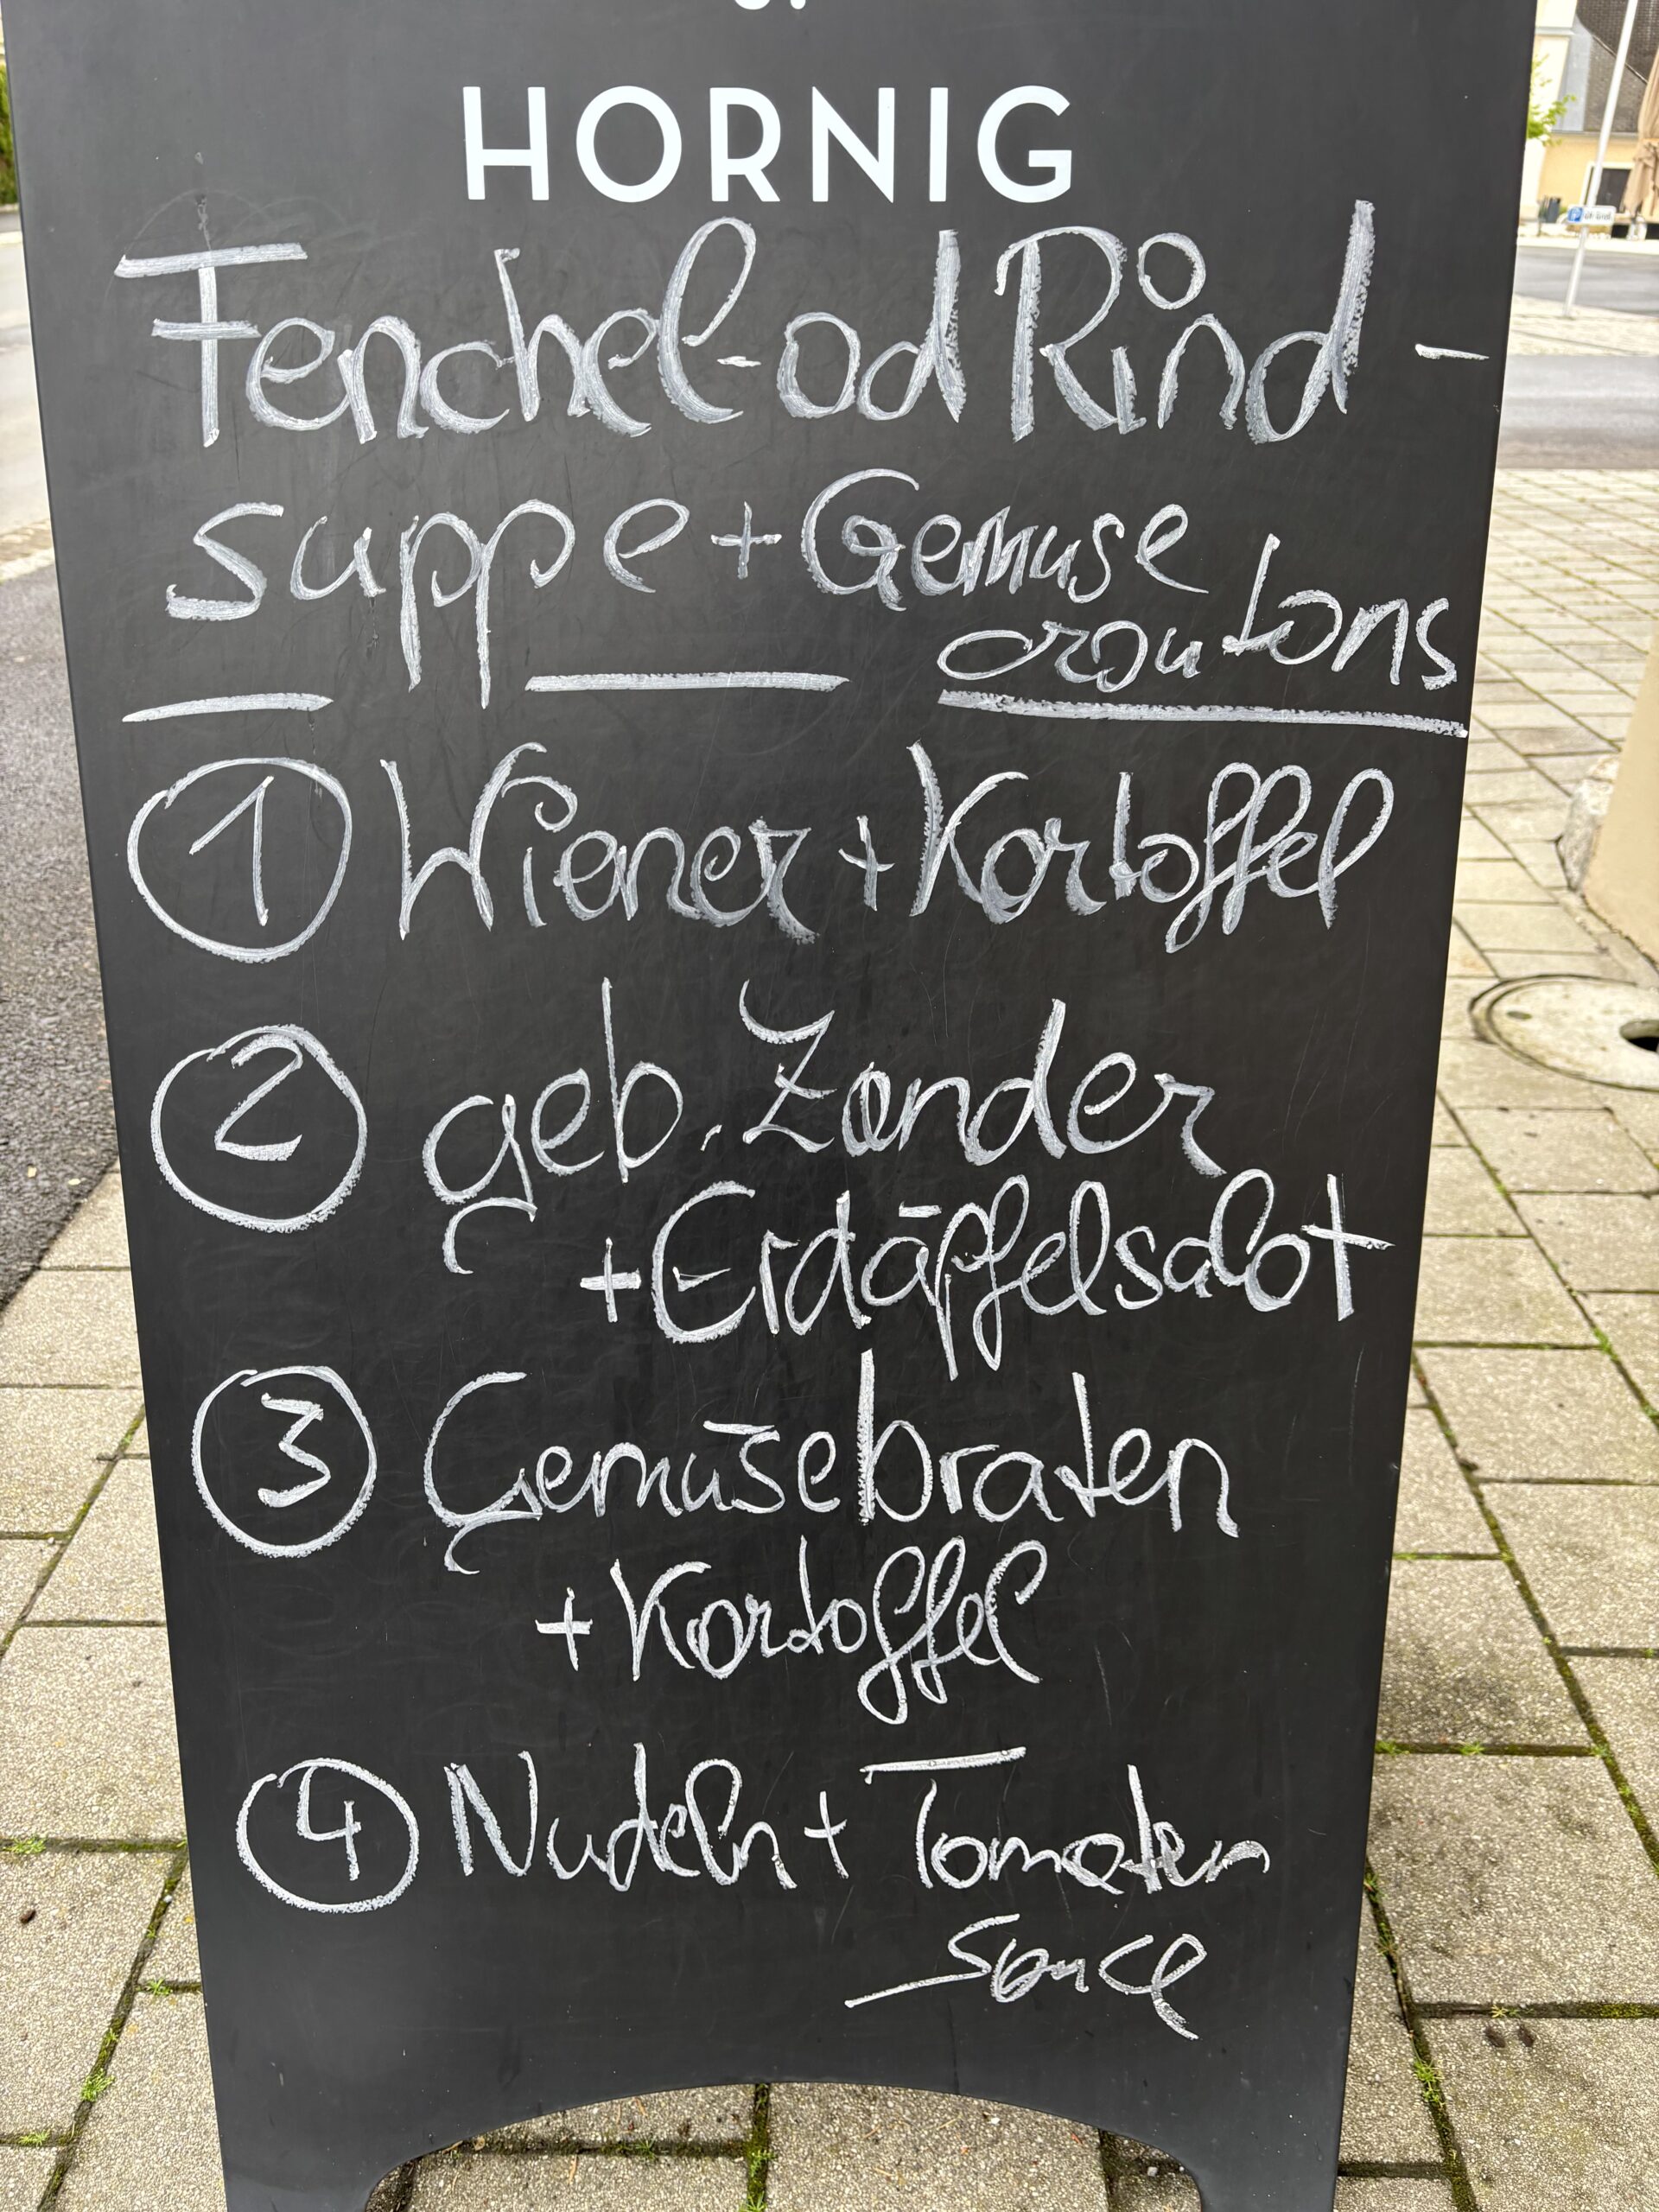 HORNIG
Fenchel-od Rind-
suppe + Gemuse
croutons
1 Wiener + Kartoffel
2 geb. Zander
+ Erdäpfelsalat
3 Gemüsebraten
+ Kartoffel
4 Nudeln + Tomaten
Sauce